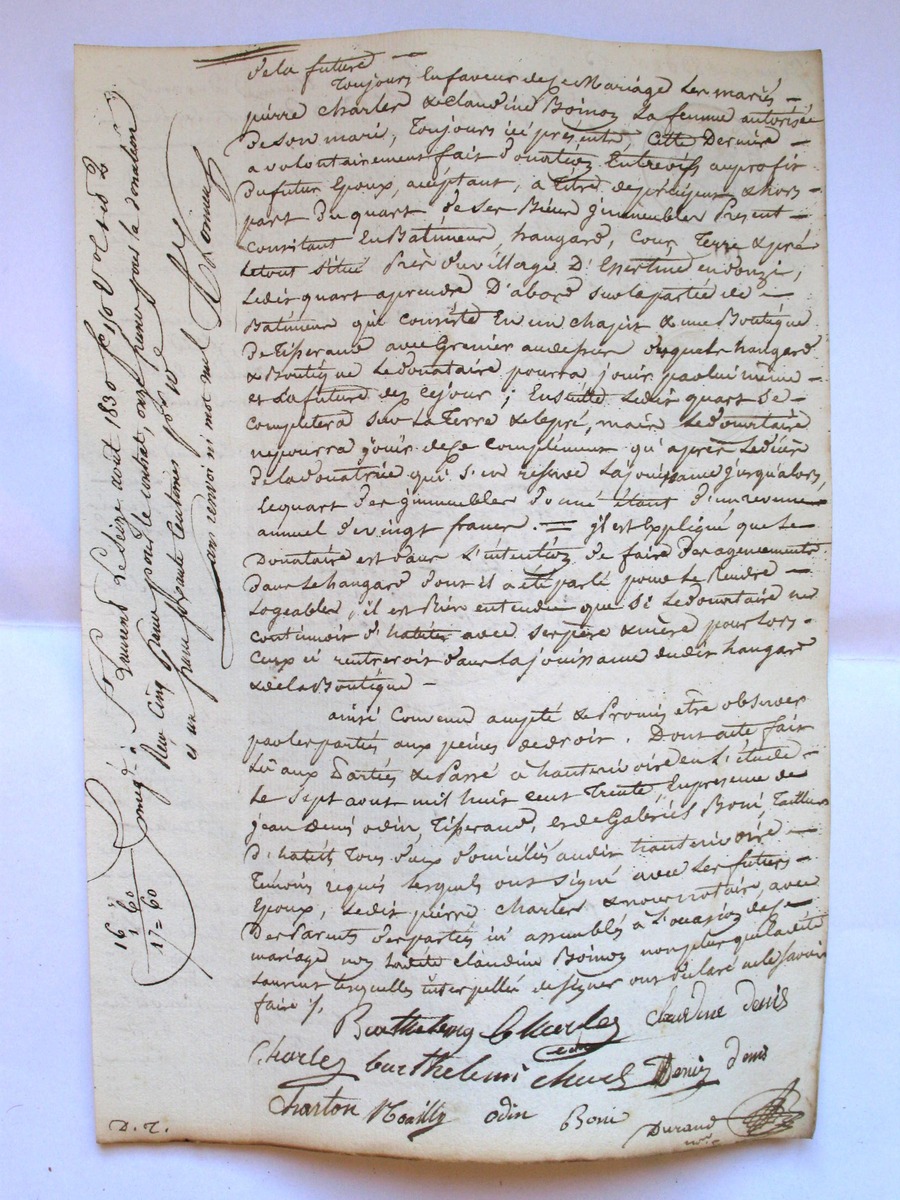 de la future —
Toujours En faveur de Ce Mariage Les mariés —
pierre Charles & claudine Boinon La femme autorisée
De Son mari, Toujours ici présente, Cette Derniere
a volontairement fait donation Entrevifs au profit
Du futur Epoux, acceptant, a titre de préciput & hors
part Du quart de Ses Biens immeubles Present —
Consistant En Batiments, hangard, Cour, Terre & pré
Le tout Situé Près du village D'Essertine en donzi,
Ledit quart a prendre D'abord Sur la partie de —
Batiment qui Consiste En un chapit & une Boutique
De Tisserand avec Grenier au dessus desquels hangard
& Boutique Le donataire pourra jouir par lui même —
et La future dez Cejour ; Ensuitte Ledit quart Se
Completera Sur La Terre & le pré, mais Le donataire
ne pourra jouir de Ce Complément qu'après Le décès
De la donatrice qui S'en reserve La jouissance jusqu'alors,
Le quart des immeubles donné Etant d'un revenu
annuel de vingt francs. = il est Expliqué que Le
Donataire est dans L'intention de faire Des agencements
Dans Le hangard dont il a été parlé pour Le Rendre —
Logeable, il est Bien entendu que Si Le donataire ne
Continuoit d'habiter avec Ses père & mère pour lors
Ceux ci rentreroit dans La jouissance dudit hangard
& de la Boutique —
ainsi Convenu accepté & Promis être observer
par les parties aux peines de droit. Dont acte fait
Lu aux Parties & Passé à hauterivoire en L'étude —
Le Sept aout mil huit Cent Trente En presence de
jean Denis odin, Tisserand, et de Gabriel Boni, Tailleur
D'habits, Tous deux domiciliés audit hauterivoire —
Temoins requis Lesquels ont Signé avec Les futurs —
Epoux, Ledit pierre Charles & nous notaire, avec
Des Parents des parties ici assemblés à L'occasion de Ce
mariage non Ladite Claudine Boinon non plus que
Lesquelles interpellées de signer ont déclaré ne le Savoir
faire /.
Barthelemy Charles Claudine denis
Charles barthelemi Denis denis
Charton Noailly odin Boni Durand
not.
D. T.
Le Seize aout 1830 f° 190 V°
Reçu Cinq francs pour le contrat, onze francs pour la donation
et un franc soixante centimes pour le
sans renvoi ni mot nul
16
1 60
17 = 60